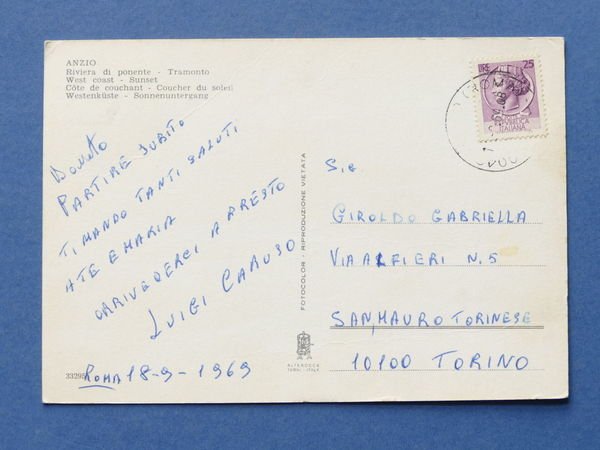 ANZIO
Riviera di ponente - Tramonto
West coast - Sunset
Côte de couchant - Coucher du soleil
Westenküste - Sonnenuntergang
PARTIRE SUBITO
TI MANDO TANTI SALUTI
ATE E MARIA
ARRIVEDERCI A PRESTO
LUIGI CARUSO
ROMA 18-9-1969
33295
FOTOCOLOR - RIPRODUZIONE VIETATA
ALTEROCCA
TERNI - ITALY
LIRE 25
ITALIANA
ROMA
Sig.
GIROLDO GABRIELLA
VIA ALFIERI N. 5
SAN MAURO TORINESE
10100 TORINO